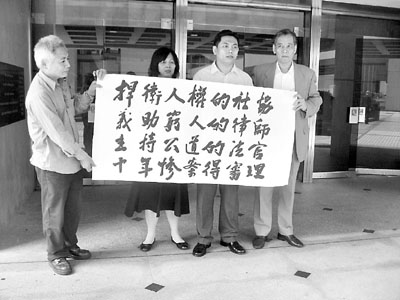 捍衛人權的社協
義助窮人的律師
主持公道的法官
十年慘案得審理